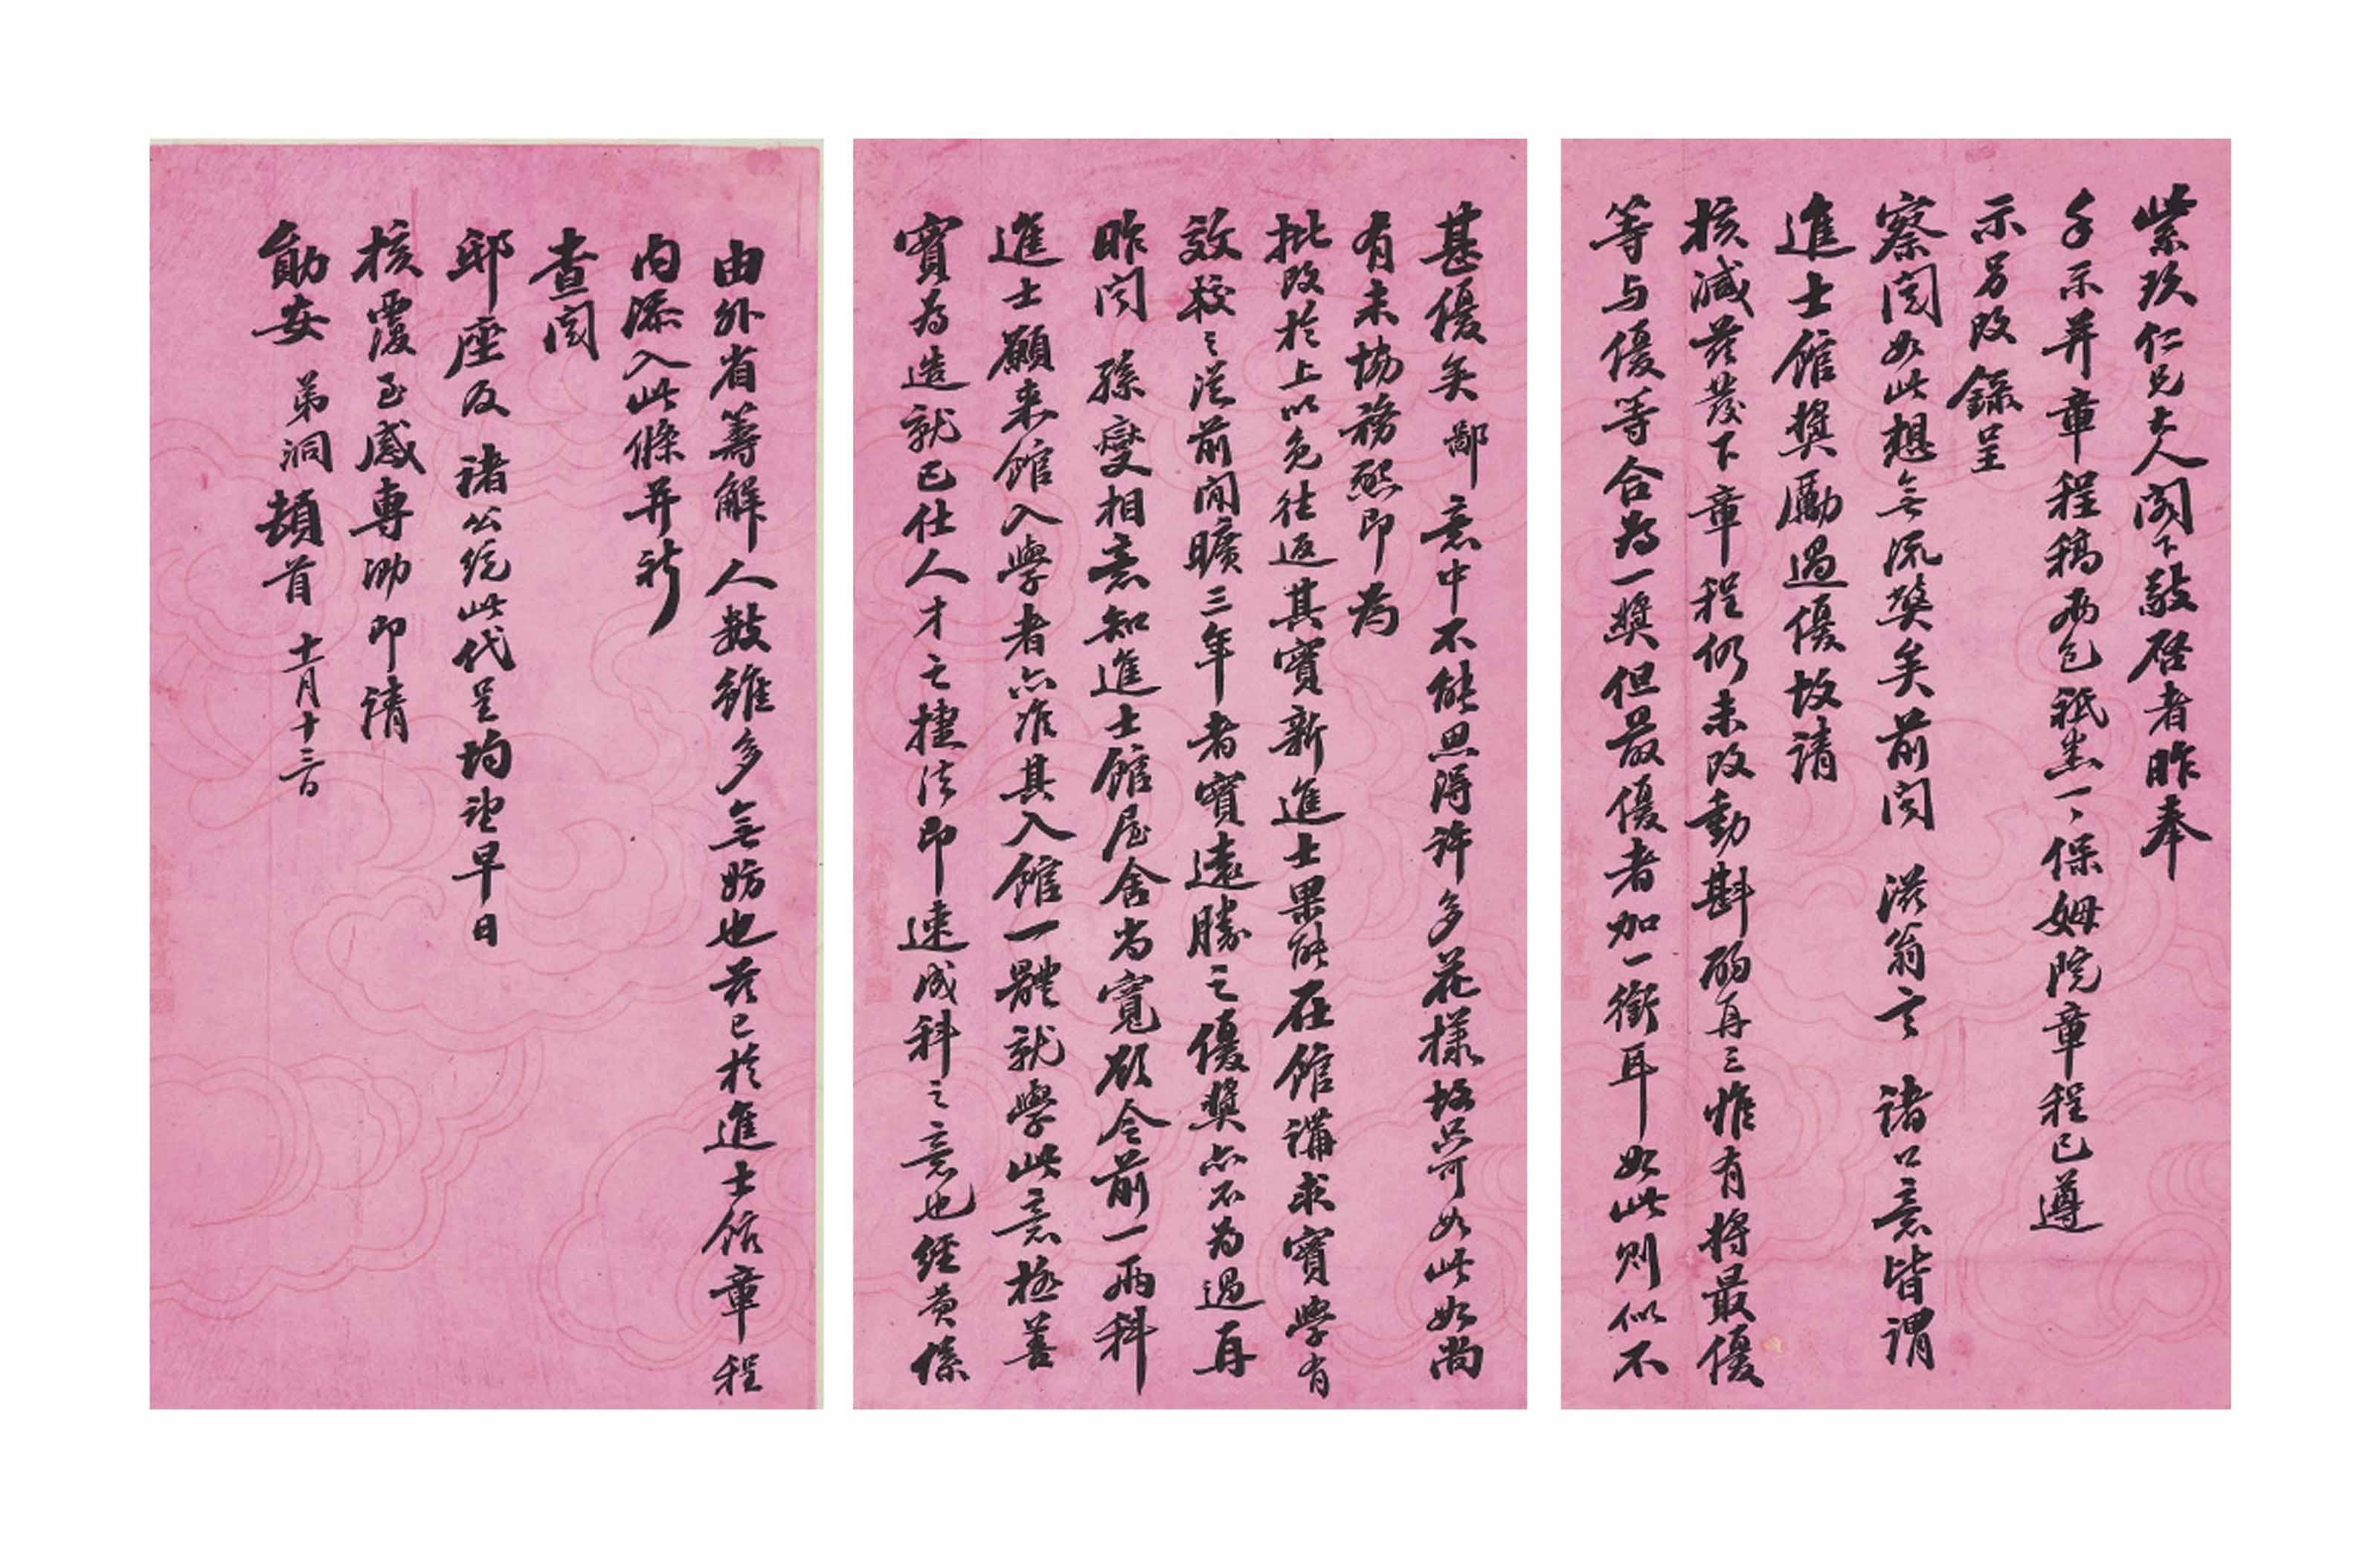 紫玖仁兄大人閣下敬啓者昨奉
手示并章程稿兩包祇悉一一保姆院章程已遵
示另改錄呈
察閱如此想無流弊矣前聞 滋翁言 諸公意皆謂
進士館獎勵過優故請
核減茲發下章程仍未改動斟酌再三惟有將最優
等與優等合為一獎但最優者加一銜耳如此則似不
甚優矣鄙意中不能思得許多花樣故只可如此如尚
有未協務懇即為
批改於上以免往返其實新進士果能在館講求實學有
效較之從前閒曠三年者實遠勝之優獎亦不為過再
昨聞 孫燮相意知進士館屋舍尚寬欲令前一兩科
進士願來館入學者亦准其入館一體就學此意極善
實為造就已仕人才之捷法即速成科之意也經費係
由外省籌解人數雖多無妨也茲已於進士館章程
內添入此條并祈
查閱
邸座及 諸公統此代呈均望早日
核覆至感專泐即請
勛安 弟洞頓首 十一月十三日